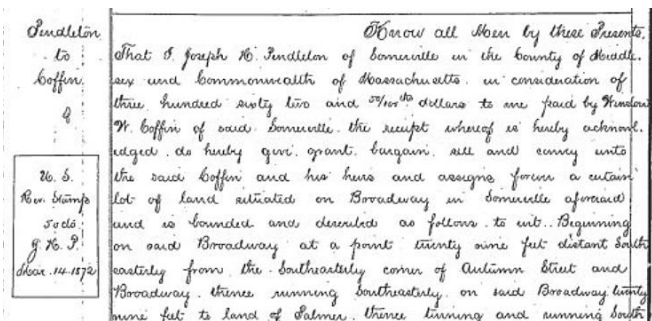 Pendleton
to
Coffin.
U. S.
Rev. Stamps
50 cts
J. H. P.
Mar. 14. 1872
Know all Men by these Presents,
That I, Joseph H. Pendleton of Somerville in the County of Middle-
sex and Commonwealth of Massachusetts in consideration of
three hundred sixty two and 50/100ths dollars to me paid by Winslow
W. Coffin of said Somerville, the receipt whereof is hereby acknowl-
edged, do hereby give, grant, bargain, sell and convey unto
the said Coffin and his heirs and assigns forever a certain
lot of land situated on Broadway in Somerville aforesaid
and is bounded and described as follows, to wit. Beginning
on said Broadway at a point twenty nine feet distant South
easterly from the Southeasterly corner of Autumn Street and
Broadway, thence running Southeasterly on said Broadway twenty
nine feet to land of Palmer, thence turning and running South